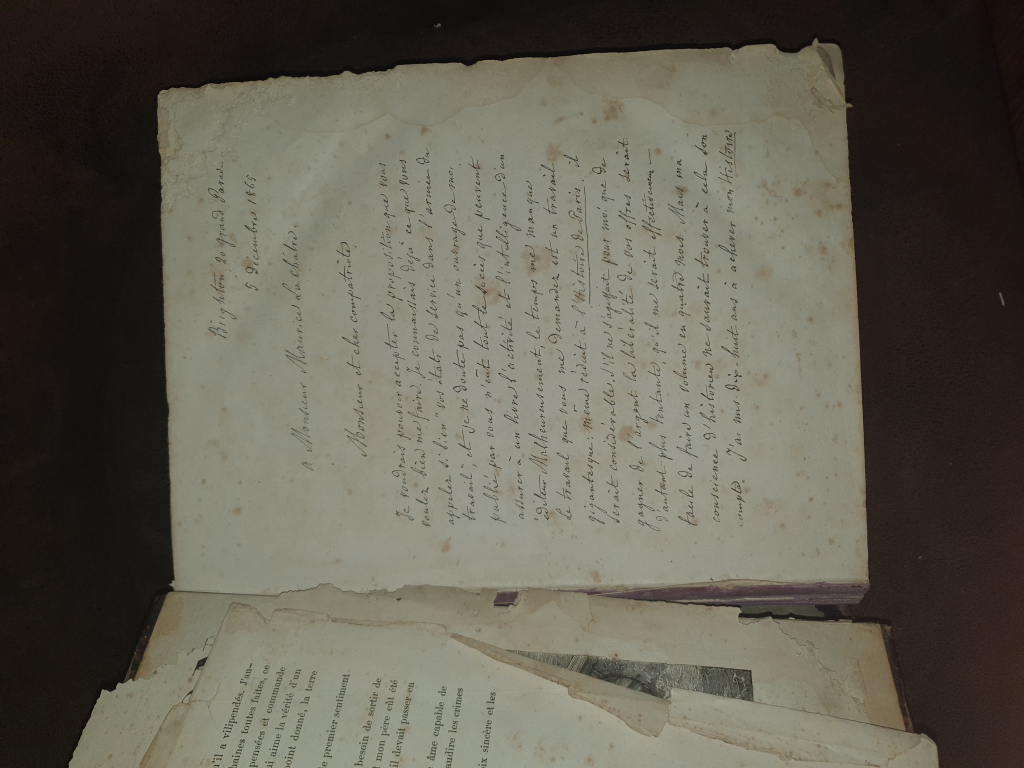 Brighton 20 grand Parade
5 Décembre 1866
à Monsieur Maurice Lachâtre.
Monsieur et cher compatriote
Je voudrais pouvoir accepter la proposition que vous
voulez bien me faire, je connaissais déjà ce que vous
appelez si bien vos états de service dans l'armée du
travail, et je ne doute pas qu'un ouvrage de moi
publié par vous n'eût tout le succès que peuvent
assurer à un livre l'activité et l'intelligence d'un
éditeur. Malheureusement, le temps me manque
Le travail que vous me demandez est un travail
gigantesque: même réduit à l'Histoire de Paris, il
serait considérable. S'il ne s'agissait pour moi que de
gagner de l'argent la libéralité de vos offres serait
d'autant plus tentante qu'il me serait effectivement
facile de faire un volume en quatre mois. Mais ma
conscience d'historien ne saurait trouver à cela son
compte. J'ai mis dix-huit ans à achever mon Histoire
u'il a vilipendés, J'au-
haines toutes faites, ce
pensées et commande
ui aime la vérité d'un
point donné, la terre
e premier sentiment
besoin de sortir de
mon père eût été
il devait passer en
âme capable de
audire les crimes
oix sincère et les